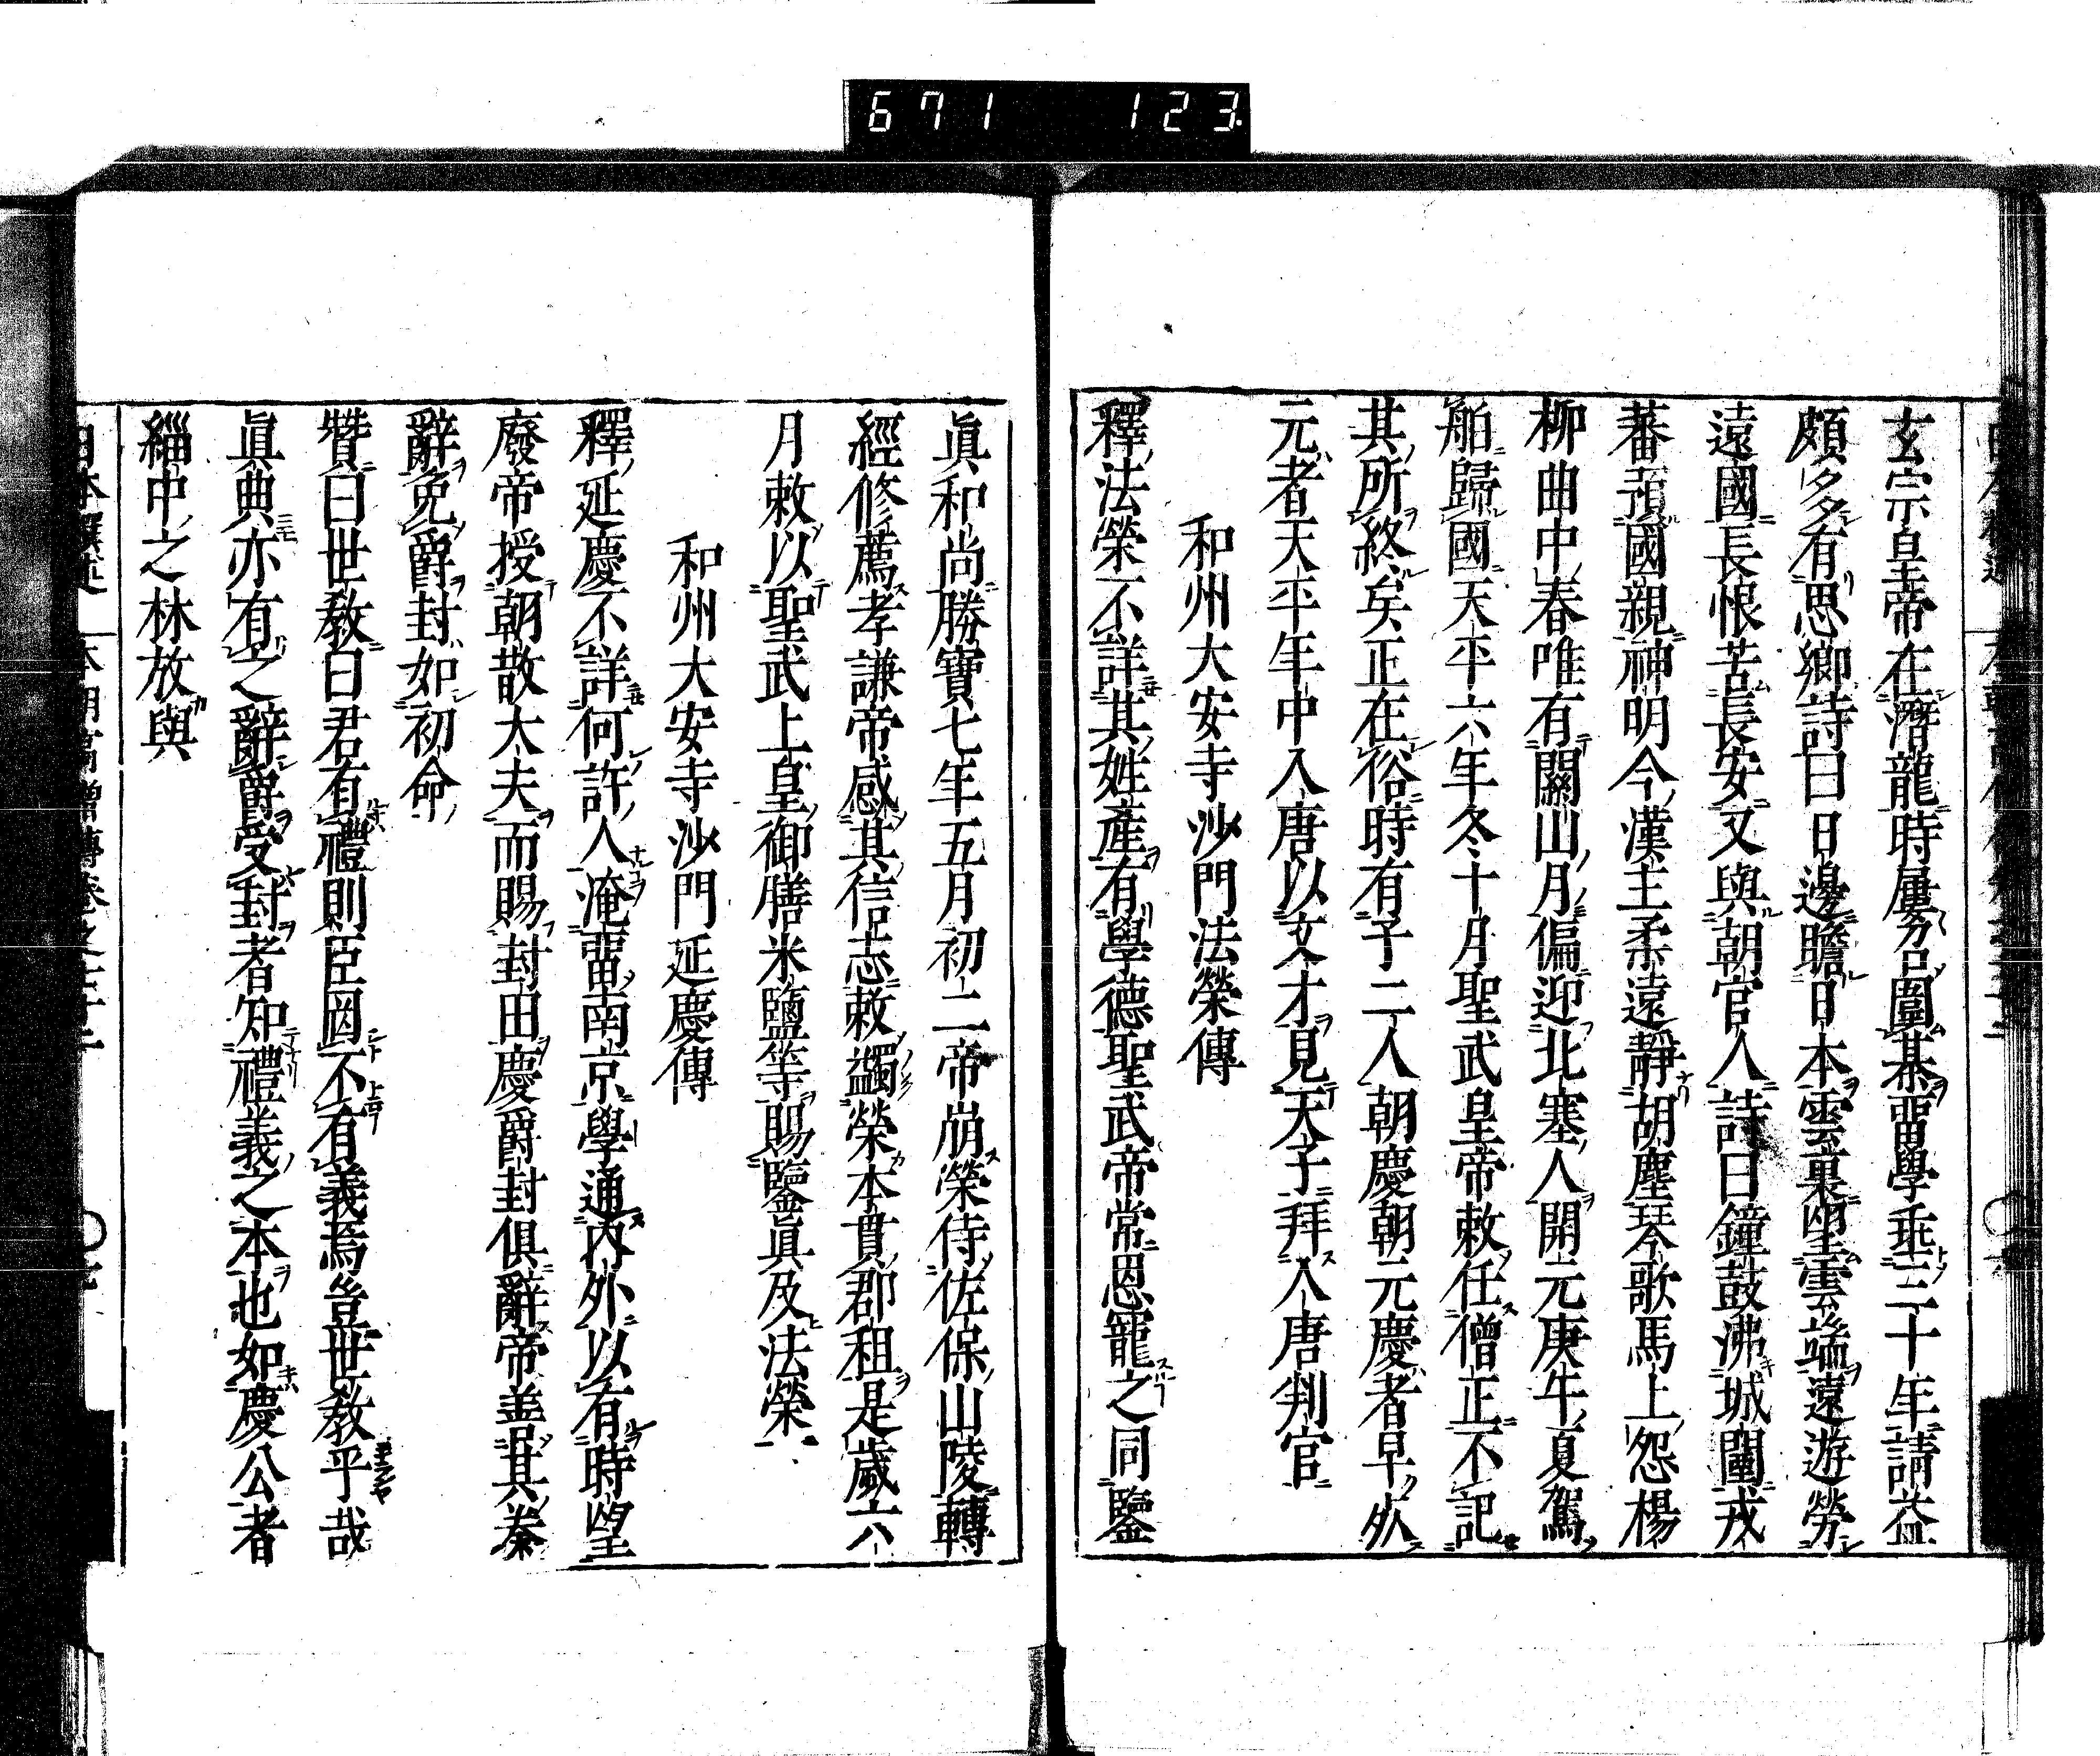 671 123
玄宗皇帝在潛龍時屢召圍棊畱學垂三十年請益
頗多有思鄉詩曰日邊瞻日本雲裏望雲端遠遊勞
遠國長恨苦長安又與朝官人詩曰鐘鼓沸城闉戎
蕃預國親神明今漢主柔遠靜胡塵琴歌馬上怨楊
柳曲中春唯有關山月偏迎北塞人開元庚午夏駕
舶歸國天平六年冬十月聖武皇帝敕任僧正不記
其所終矣正在俗時有子二人朝慶朝元慶者早殀
元者天平年中入唐以文才見天子拜入唐判官
和州大安寺沙門法榮傳
釋法榮不詳其姓產有學德聖武帝常恩寵之同鑒
眞和尚勝寶七年五月初二帝崩榮侍佐保山陵轉
經修薦孝謙帝感其信志敕蠲榮本貫郡租是歲六
月敕以聖武上皇御膳米鹽等賜鑒眞及法榮
和州大安寺沙門延慶傳
釋延慶不詳何許人淹畱南京學通內外以有時望
廢帝授朝散大夫而賜封田慶爵封俱辭帝善其奏
辭免爵封如初命
贊曰世敎曰君有禮則臣罔不有義焉豈世敎乎哉
眞典亦有之辭爵受封者知禮義之本也如慶公者
緇中之林放與
日本撰述 本朝高僧傳卷之七十二